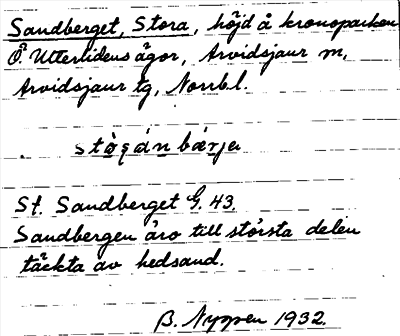 Sandberget, Stora, höjd å kronoparken
Ö. Utterlidens ägor, Arvidsjaur sn,
Arvidsjaur tg, Norrb.l.
bærje
St. Sandberget G. 43.
Sandbergen äro till största delen
täckta av hedsand.
B. Nyppen 1932.